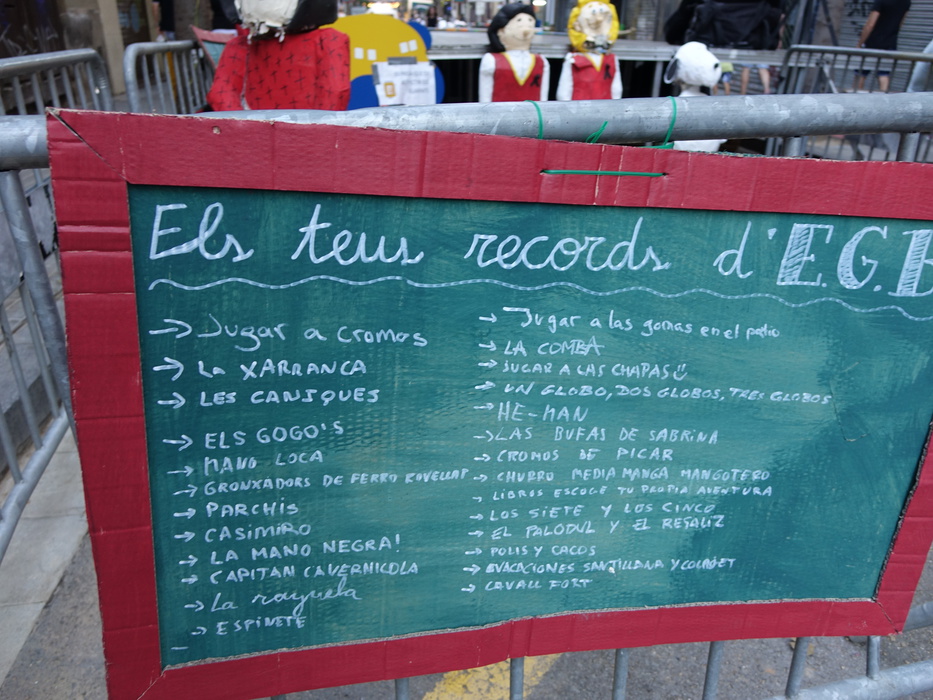 Els teus records d'E.G.B
→ Jugar a cromos
→ LA XARRANCA
→ LES CANIQUES
→ ELS GOGO'S
→ MANO LOCA
→ GRONXADORS DE FERRO ROVELLAT
→ PARCHIS
→ CASIMIRO
→ LA MANO NEGRA!
→ CAPITAN CAVERNICOLA
→ La rayuela
→ ESPINETE
→ Jugar a las gomas en el patio
→ LA COMBA
→ JUGAR A LAS CHAPAS
→ UN GLOBO, DOS GLOBOS, TRES GLOBOS
→ HE-MAN
→ LAS BUFAS DE SABRINA
→ CROMOS DE PICAR
→ CHURRO MEDIA MANGA MANGOTERO
→ LIBROS ESCOGE TU PROPIA AVENTURA
→ LOS SIETE Y LOS CINCO
→ EL PALODUL Y EL REGALIZ
→ POLIS Y CACOS
→ VACACIONES SANTILLANA Y
→ CAVALL FORT